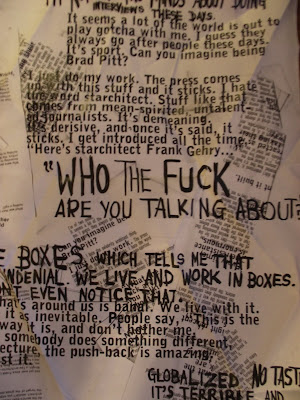 HANDS ABOUT DOING
INTERVIEWS THESE DAYS
It seems a lot of the world is out to
play gotcha with me. I guess they
always go after people these days.
It's sport. Can you imagine being
Brad Pitt?
I just do my work. The press comes
up with this stuff and it sticks. I hate
the word starchitect. Stuff like that
comes from mean-spirited, untalent-
ed journalists. It's demeaning,
It's derisive, and once it's said, it
sticks. I get introduced all the time.
"Here's starchitect Frank Gehry...
"WHO THE FUCK
ARE YOU TALKING ABOUT?
BOXES, WHICH TELLS ME THAT
DENIAL. WE LIVE AND WORK IN BOXES.
EVEN NOTICE THAT.
what's around us is banal. We live with it.
it as inevitable. People say, "This is the
way it is, and don't bother me.
somebody does something different,
the push-back is amazing.
GLOBALIZED NO
IT'S TERRIBLE AND